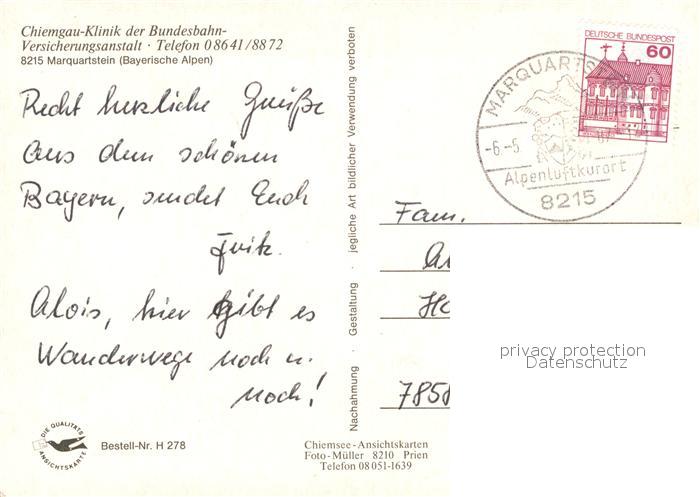 Chiemgau-Klinik der Bundesbahn-
Versicherungsanstalt · Telefon 0 86 41 / 88 72
8215 Marquartstein (Bayerische Alpen)
Recht herzliche Grüße
aus dem schönen
Bayern, sendet Euch
Fritz.
Alois, hier gibt es
Wanderwege noch u.
noch!
DIE QUALITÄTS
ANSICHTSKARTE
Bestell-Nr. H 278
Nachahmung · Gestaltung · jegliche Art bildlicher Verwendung verboten
DEUTSCHE BUNDESPOST
60
MARQUARTS
-6.-5
Alpenluftkurort
8215
Fam.
H
7858
privacy protection
Datenschutz
Chiemsee-Ansichtskarten
Foto-Müller 8210 Prien
Telefon 08 051-1639